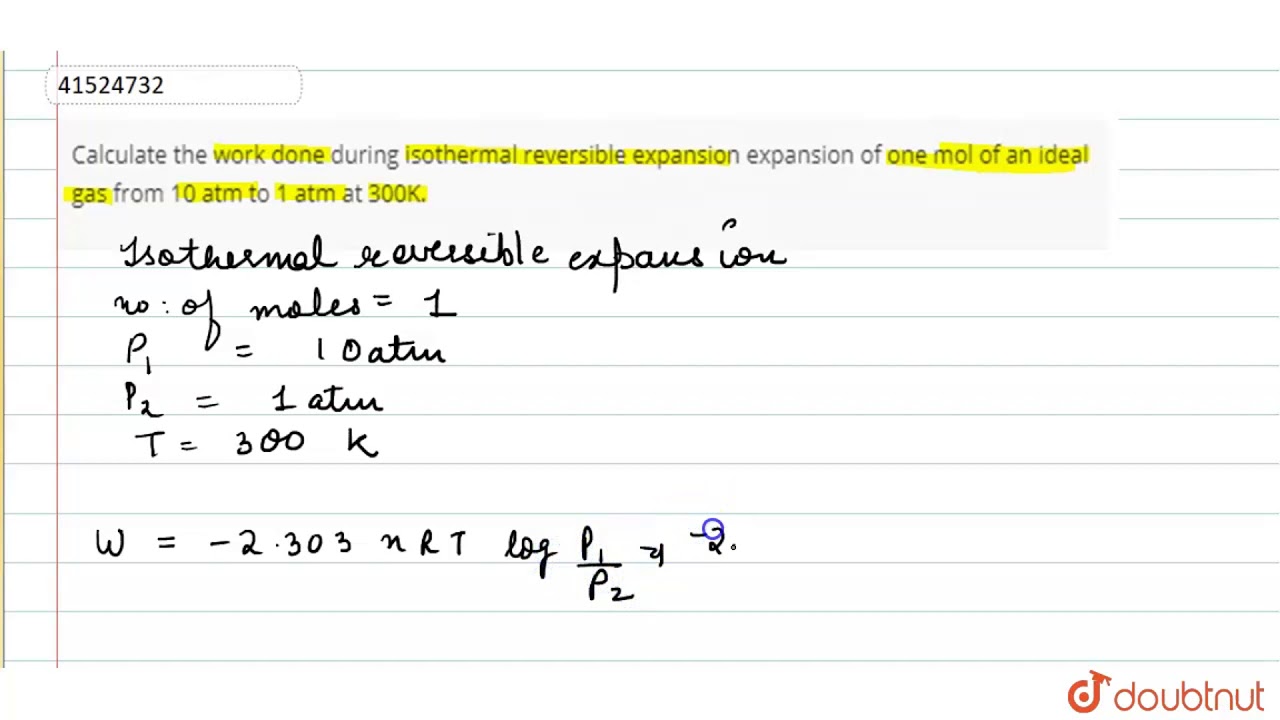 41524732
Calculate the work done during isothermal reversible expansion expansion of one mol of an ideal
gas from 10 atm to 1 atm at 300K.
Isothermal reversible expansion
no: of moles = 1
P₁ = 10 atm
P₂ = 1 atm
T = 300 K
W = -2.303 n R T log P₁/P₂ ⇒ -2.
doubtnut